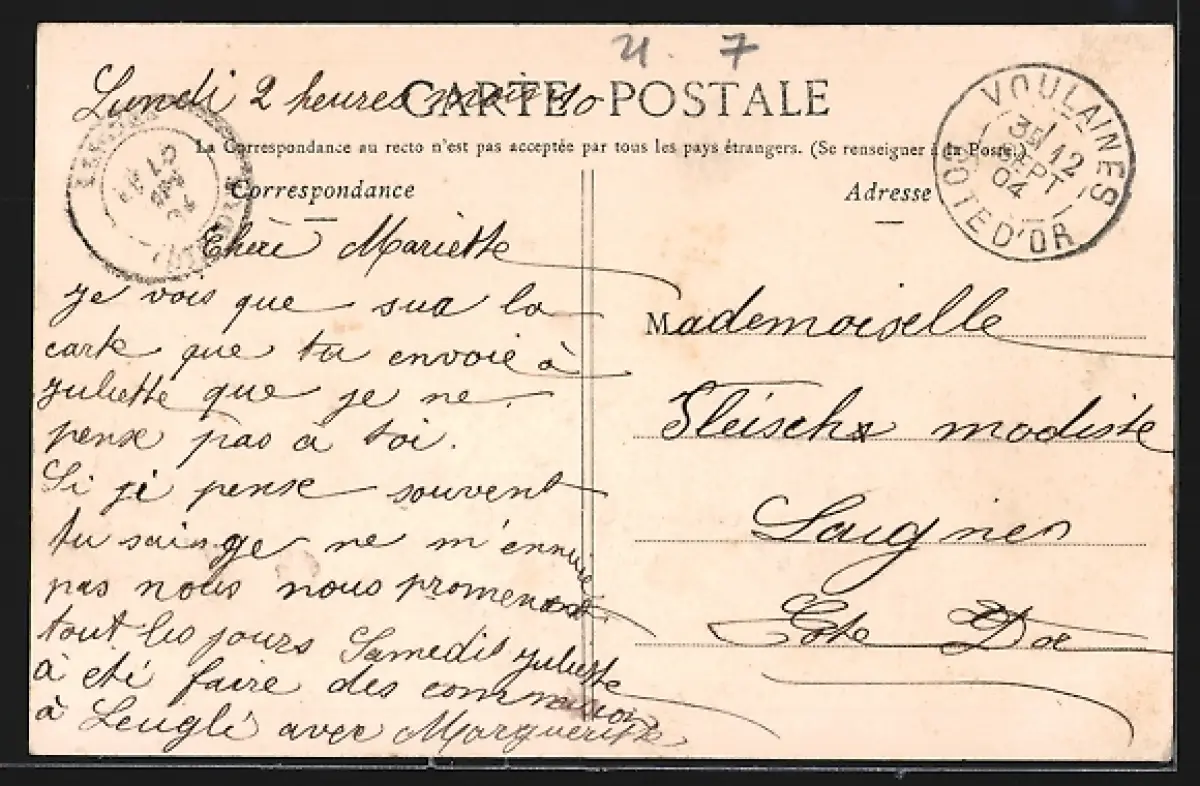 21. 7
Lundi 2 heures moins 10
CARTE POSTALE
La Correspondance au recto n'est pas acceptée par tous les pays étrangers. (Se renseigner à la Poste.)
Correspondance
Adresse
VOULAINES
3E 12
SEPT
04
CÔTE D'OR
Cheri Mariette
je vois que sua la
carte que tu envoie à
Juliette que je ne
pense pas à toi.
Si ji pense souvent
tu sais ge ne m'ennuie
pas nous nous promenons
tout les jours Samedis Juliette
à eté faire des commission
à Leuglé avec Marguerite
Mademoiselle
Fleisch modiste
Laignes
Côte D'or